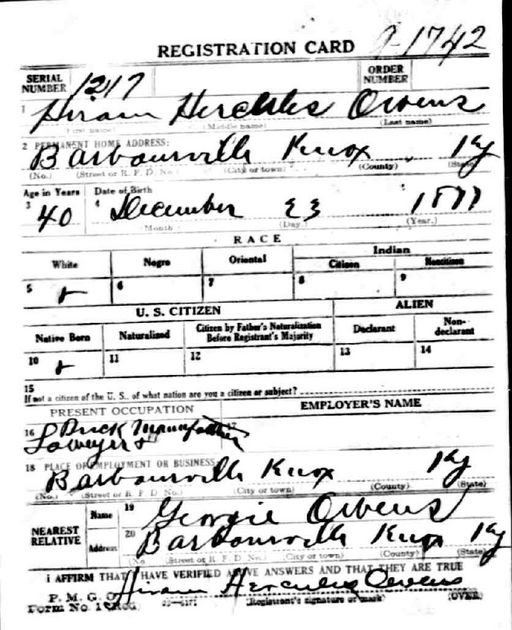 REGISTRATION CARD 1742
SERIAL NUMBER 1217 ORDER NUMBER
1 Hiram Herclles Owens
(First name) (Middle name) (Last name)
2 PERMANENT HOME ADDRESS:
Barbourville Knox Ky
(No.) (Street or R. F. D. No.) (City or town) (County) (State)
Age in Years Date of Birth
3 40 4 December 23 1877
(Month) (Day.) (Year.)
RACE
White Negro Oriental Indian
Citizen Noncitizen
5 6 7 8 9
U. S. CITIZEN ALIEN
Native Born Naturalized Citizen by Father's Naturalization Before Registrant's Majority Declarant Non-declarant
10 11 12 13 14
15
If not a citizen of the U. S., of what nation are you a citizen or subject?
PRESENT OCCUPATION EMPLOYER'S NAME
16 Brick 17
Lawyer &
18 PLACE OF EMPLOYMENT OR BUSINESS:
Barbourville Knox Ky
(No.) (Street or R. F. D. No.) (City or town) (County) (State)
NEAREST RELATIVE Name 19 Georgie Owens
Address 20 Barbourville Knox Ky
(No.) (Street or R. F. D. No.) (City or town) (County) (State)
I AFFIRM THAT I HAVE VERIFIED ABOVE ANSWERS AND THAT THEY ARE TRUE
P. M. G. O. Hiram Hercules Owens
Form No. 1 (Registrant's signature or mark) (OVER)